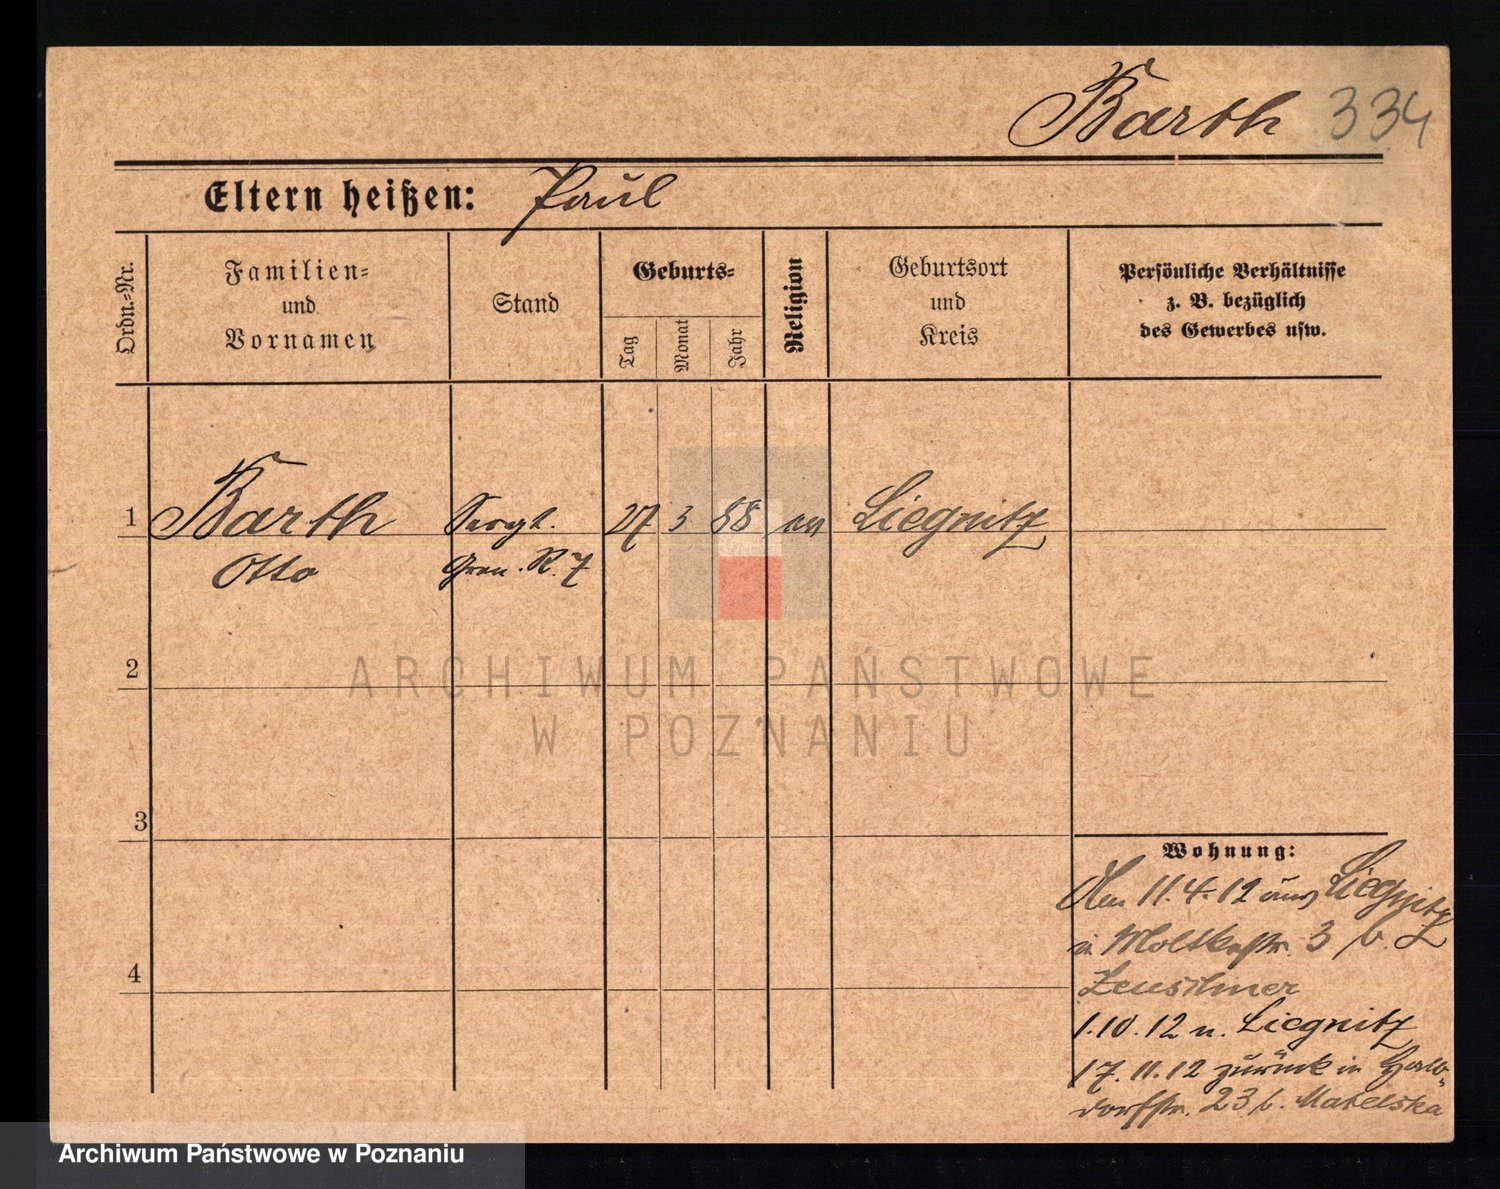 Barth 334
Eltern heißen: Paul
Ordn.-Nr.
Familien-
und
Vornamen
Stand
Geburts-
Tag
Monat
Jahr
Religion
Geburtsort
und
Kreis
Persönliche Verhältnisse
z. B. bezüglich
des Gewerbes usw.
1 Barth Sergt. 27 3 88 ev Liegnitz
Otto Gren. R. 7
2
ARCHIWUM PAŃSTWOWE
W POZNANIU
3
Wohnung:
Am 11.4.12 aus Liegnitz
in Moltkestr. 3 b.
4
Zeuschner
1.10.12 n. Liegnitz
17.11.12 zurück in
23 b. Matelska
Archiwum Państwowe w Poznaniu